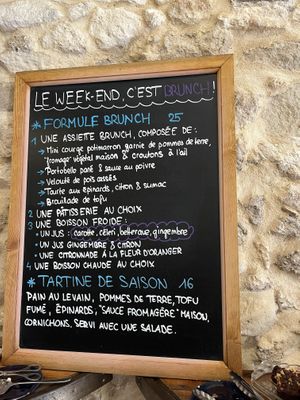 LE WEEK-END, C'EST BRUNCH!
* FORMULE BRUNCH 25
1 UNE ASSIETTE BRUNCH, COMPOSÉE DE:
→ Mini courge potimarron garnie de pommes de terre,
"fromage" végétal maison & croutons à l'ail
→ Portobello pané & sauce au poivre
→ Velouté de pois cassés
→ Tarte aux épinards, citron & sumac
→ Brouillade de tofu
2 UNE PÂTISSERIE AU CHOIX
3 UNE BOISSON FROIDE:
• UN JUS: carotte, céleri, betterave, gingembre
• UN JUS GINGEMBRE & CITRON
• UNE CITRONNADE À LA FLEUR D'ORANGER
4 UNE BOISSON CHAUDE AU CHOIX
* TARTINE DE SAISON 16
PAIN AU LEVAIN, POMMES DE TERRE, TOFU
FUMÉ, ÉPINARDS, "SAUCE FROMAGÈRE" MAISON,
CORNICHONS. SERVI AVEC UNE SALADE.